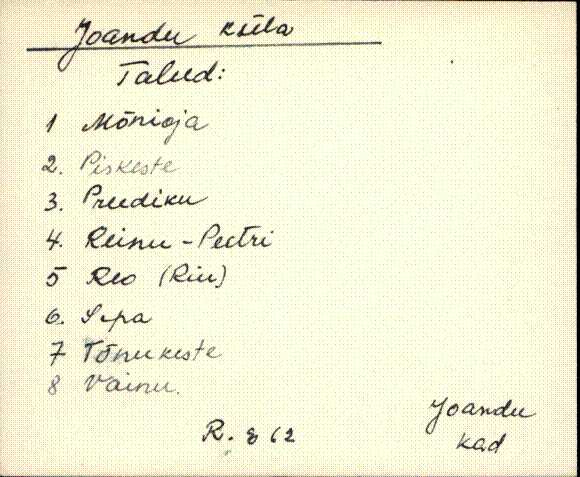 Joandu küla
Talud:
1 Mõnioja
2. Piskeste
3. Preediku
4. Reinu - Peetri
5 Reo (Riu)
6. Sepa
7 Tõnukeste
8 Vainu.
R. 8 62
Joandu
kad